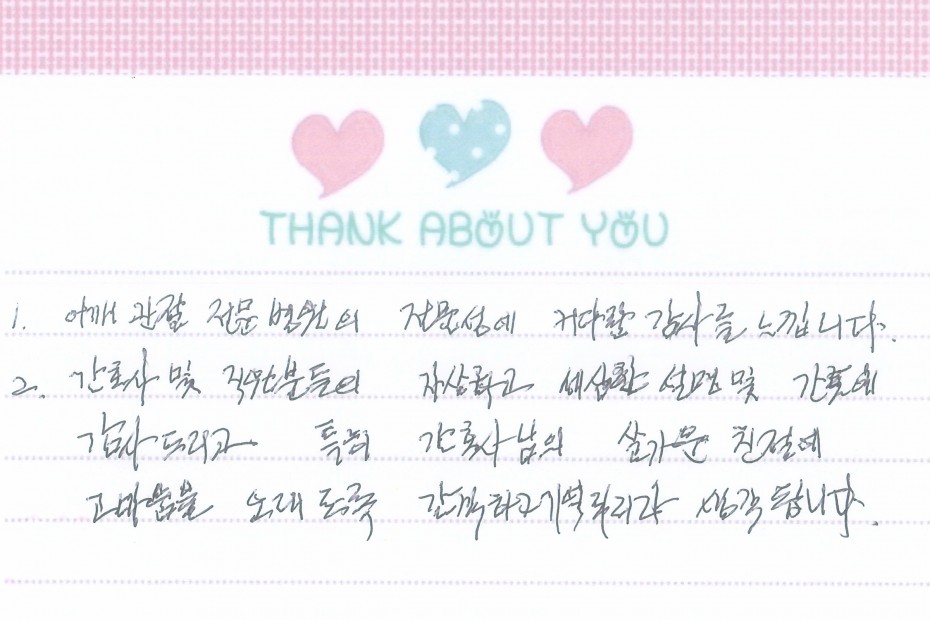 THANK ABOUT YOU
1. 어깨 관절 전문병원의 전문성에 커다란 감사를 느낍니다.
2. 간호사 및 직원분들의 자상하고 세심한 설명 및 간호에
감사드리고 특히 간호사님의 살가운 친절에
고마움을 오래도록 간직하고 기억되리라 생각됩니다.